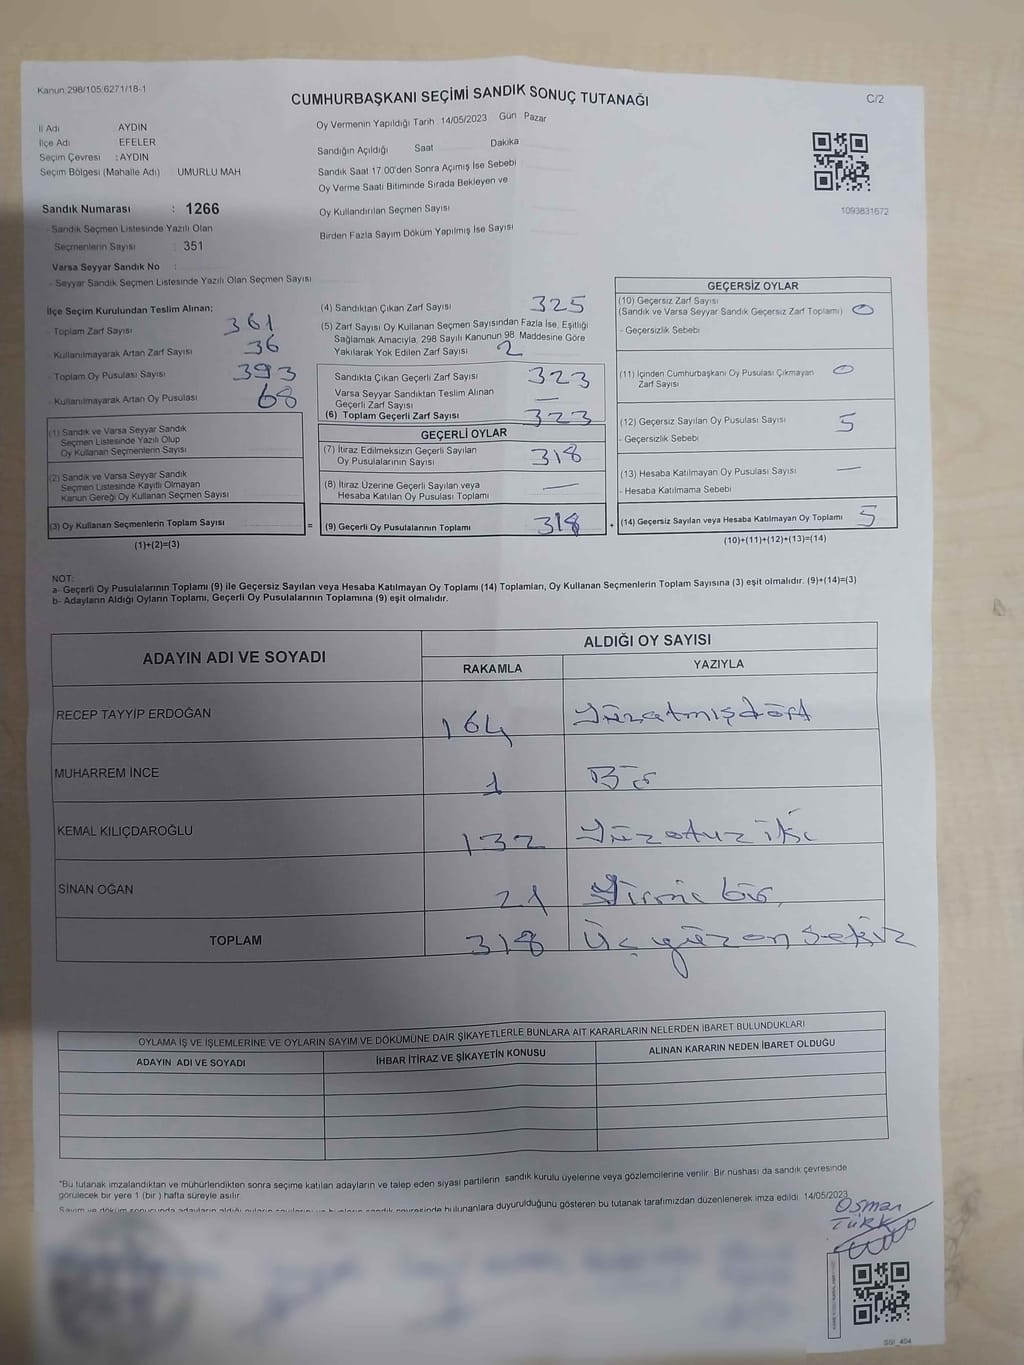 Kanun 298/105 6271/18-1
CUMHURBAŞKANI SEÇİMİ SANDIK SONUÇ TUTANAĞI
C/2
İl Adı AYDIN
İlçe Adı EFELER
Seçim Çevresi : AYDIN
Seçim Bölgesi (Mahalle Adı) UMURLU MAH
Sandık Numarası : 1266
- Sandık Seçmen Listesinde Yazılı Olan
Seçmenlerin Sayısı : 351
Varsa Seyyar Sandık No :
- Seyyar Sandık Seçmen Listesinde Yazılı Olan Seçmen Sayısı
Oy Vermenin Yapıldığı Tarih 14/05/2023 Gün Pazar
Sandığın Açıldığı Saat Dakika
Sandık Saat 17 00'den Sonra Açımış İse Sebebi
Oy Verme Saati Bitiminde Sırada Bekleyen ve
Oy Kullandırılan Seçmen Sayısı
Birden Fazla Sayım Döküm Yapılmış İse Sayısı
1093831672
İlçe Seçim Kurulundan Teslim Alınan;
- Toplam Zarf Sayısı 361
- Kullanılmayarak Artan Zarf Sayısı 36
- Toplam Oy Pusulası Sayısı 393
- Kullanılmayarak Artan Oy Pusulası 68
(1) Sandık ve Varsa Seyyar Sandık
Seçmen Listesinde Yazılı Olup
Oy Kullanan Seçmenlerin Sayısı
(2) Sandık ve Varsa Seyyar Sandık
Seçmen Listesinde Kayıtlı Olmayan
Kanun Gereği Oy Kullanan Seçmen Sayısı
(3) Oy Kullanan Seçmenlerin Toplam Sayısı =
(1)+(2)=(3)
(4) Sandıktan Çıkan Zarf Sayısı 325
(5) Zarf Sayısı Oy Kullanan Seçmen Sayısından Fazla İse, Eşitliği
Sağlamak Amacıyla, 298 Sayılı Kanunun 98 Maddesine Göre
Yakılarak Yok Edilen Zarf Sayısı 2
Sandıkta Çıkan Geçerli Zarf Sayısı 323
Varsa Seyyar Sandıktan Teslim Alınan
Geçerli Zarf Sayısı —
(6) Toplam Geçerli Zarf Sayısı 323
GEÇERLİ OYLAR
(7) İtiraz Edilmeksizin Geçerli Sayılan
Oy Pusulalarının Sayısı 318
(8) İtiraz Üzerine Geçerli Sayılan veya
Hesaba Katılan Oy Pusulası Toplamı —
(9) Geçerli Oy Pusulalarının Toplamı 318 +
GEÇERSİZ OYLAR
(10) Geçersiz Zarf Sayısı
(Sandık ve Varsa Seyyar Sandık Geçersiz Zarf Toplamı) 0
- Geçersizlik Sebebi
(11) İçinden Cumhurbaşkanı Oy Pusulası Çıkmayan
Zarf Sayısı 0
(12) Geçersiz Sayılan Oy Pusulası Sayısı 5
- Geçersizlik Sebebi
(13) Hesaba Katılmayan Oy Pusulası Sayısı —
- Hesaba Katılmama Sebebi
(14) Geçersiz Sayılan veya Hesaba Katılmayan Oy Toplamı 5
(10)+(11)+(12)+(13)=(14)
NOT:
a- Geçerli Oy Pusulalarının Toplamı (9) ile Geçersiz Sayılan veya Hesaba Katılmayan Oy Toplamı (14) Toplamları, Oy Kullanan Seçmenlerin Toplam Sayısına (3) eşit olmalıdır. (9)+(14)=(3)
b- Adayların Aldığı Oyların Toplamı, Geçerli Oy Pusulalarının Toplamına (9) eşit olmalıdır.
ADAYIN ADI VE SOYADI
ALDIĞI OY SAYISI
RAKAMLA YAZIYLA
RECEP TAYYİP ERDOĞAN 164 Yüzatmışdört
MUHARREM İNCE 1 Bir
KEMAL KILIÇDAROĞLU 132 Yüzotuz iki
SİNAN OĞAN 21 Yirmi bir
TOPLAM 318 Üçyüz on sekiz
OYLAMA İŞ VE İŞLEMLERİNE VE OYLARIN SAYIM VE DÖKÜMÜNE DAİR ŞİKAYETLERLE BUNLARA AİT KARARLARIN NELERDEN İBARET BULUNDUKLARI
ADAYIN ADI VE SOYADI İHBAR İTİRAZ VE ŞİKAYETİN KONUSU ALINAN KARARIN NEDEN İBARET OLDUĞU
*Bu tutanak imzalandıktan ve mühürlendikten sonra seçime katılan adayların ve talep eden siyasi partilerin sandık kurulu üyelerine veya gözlemcilerine verilir. Bir nüshası da sandık çevresinde
görülecek bir yere 1 (bir ) hafta süreyle asılır.
bulunanlara duyurulduğunu gösteren bu tutanak tarafımızdan düzenlenerek imza edildi. 14/05/2023
Osman
Türk
SSI_404